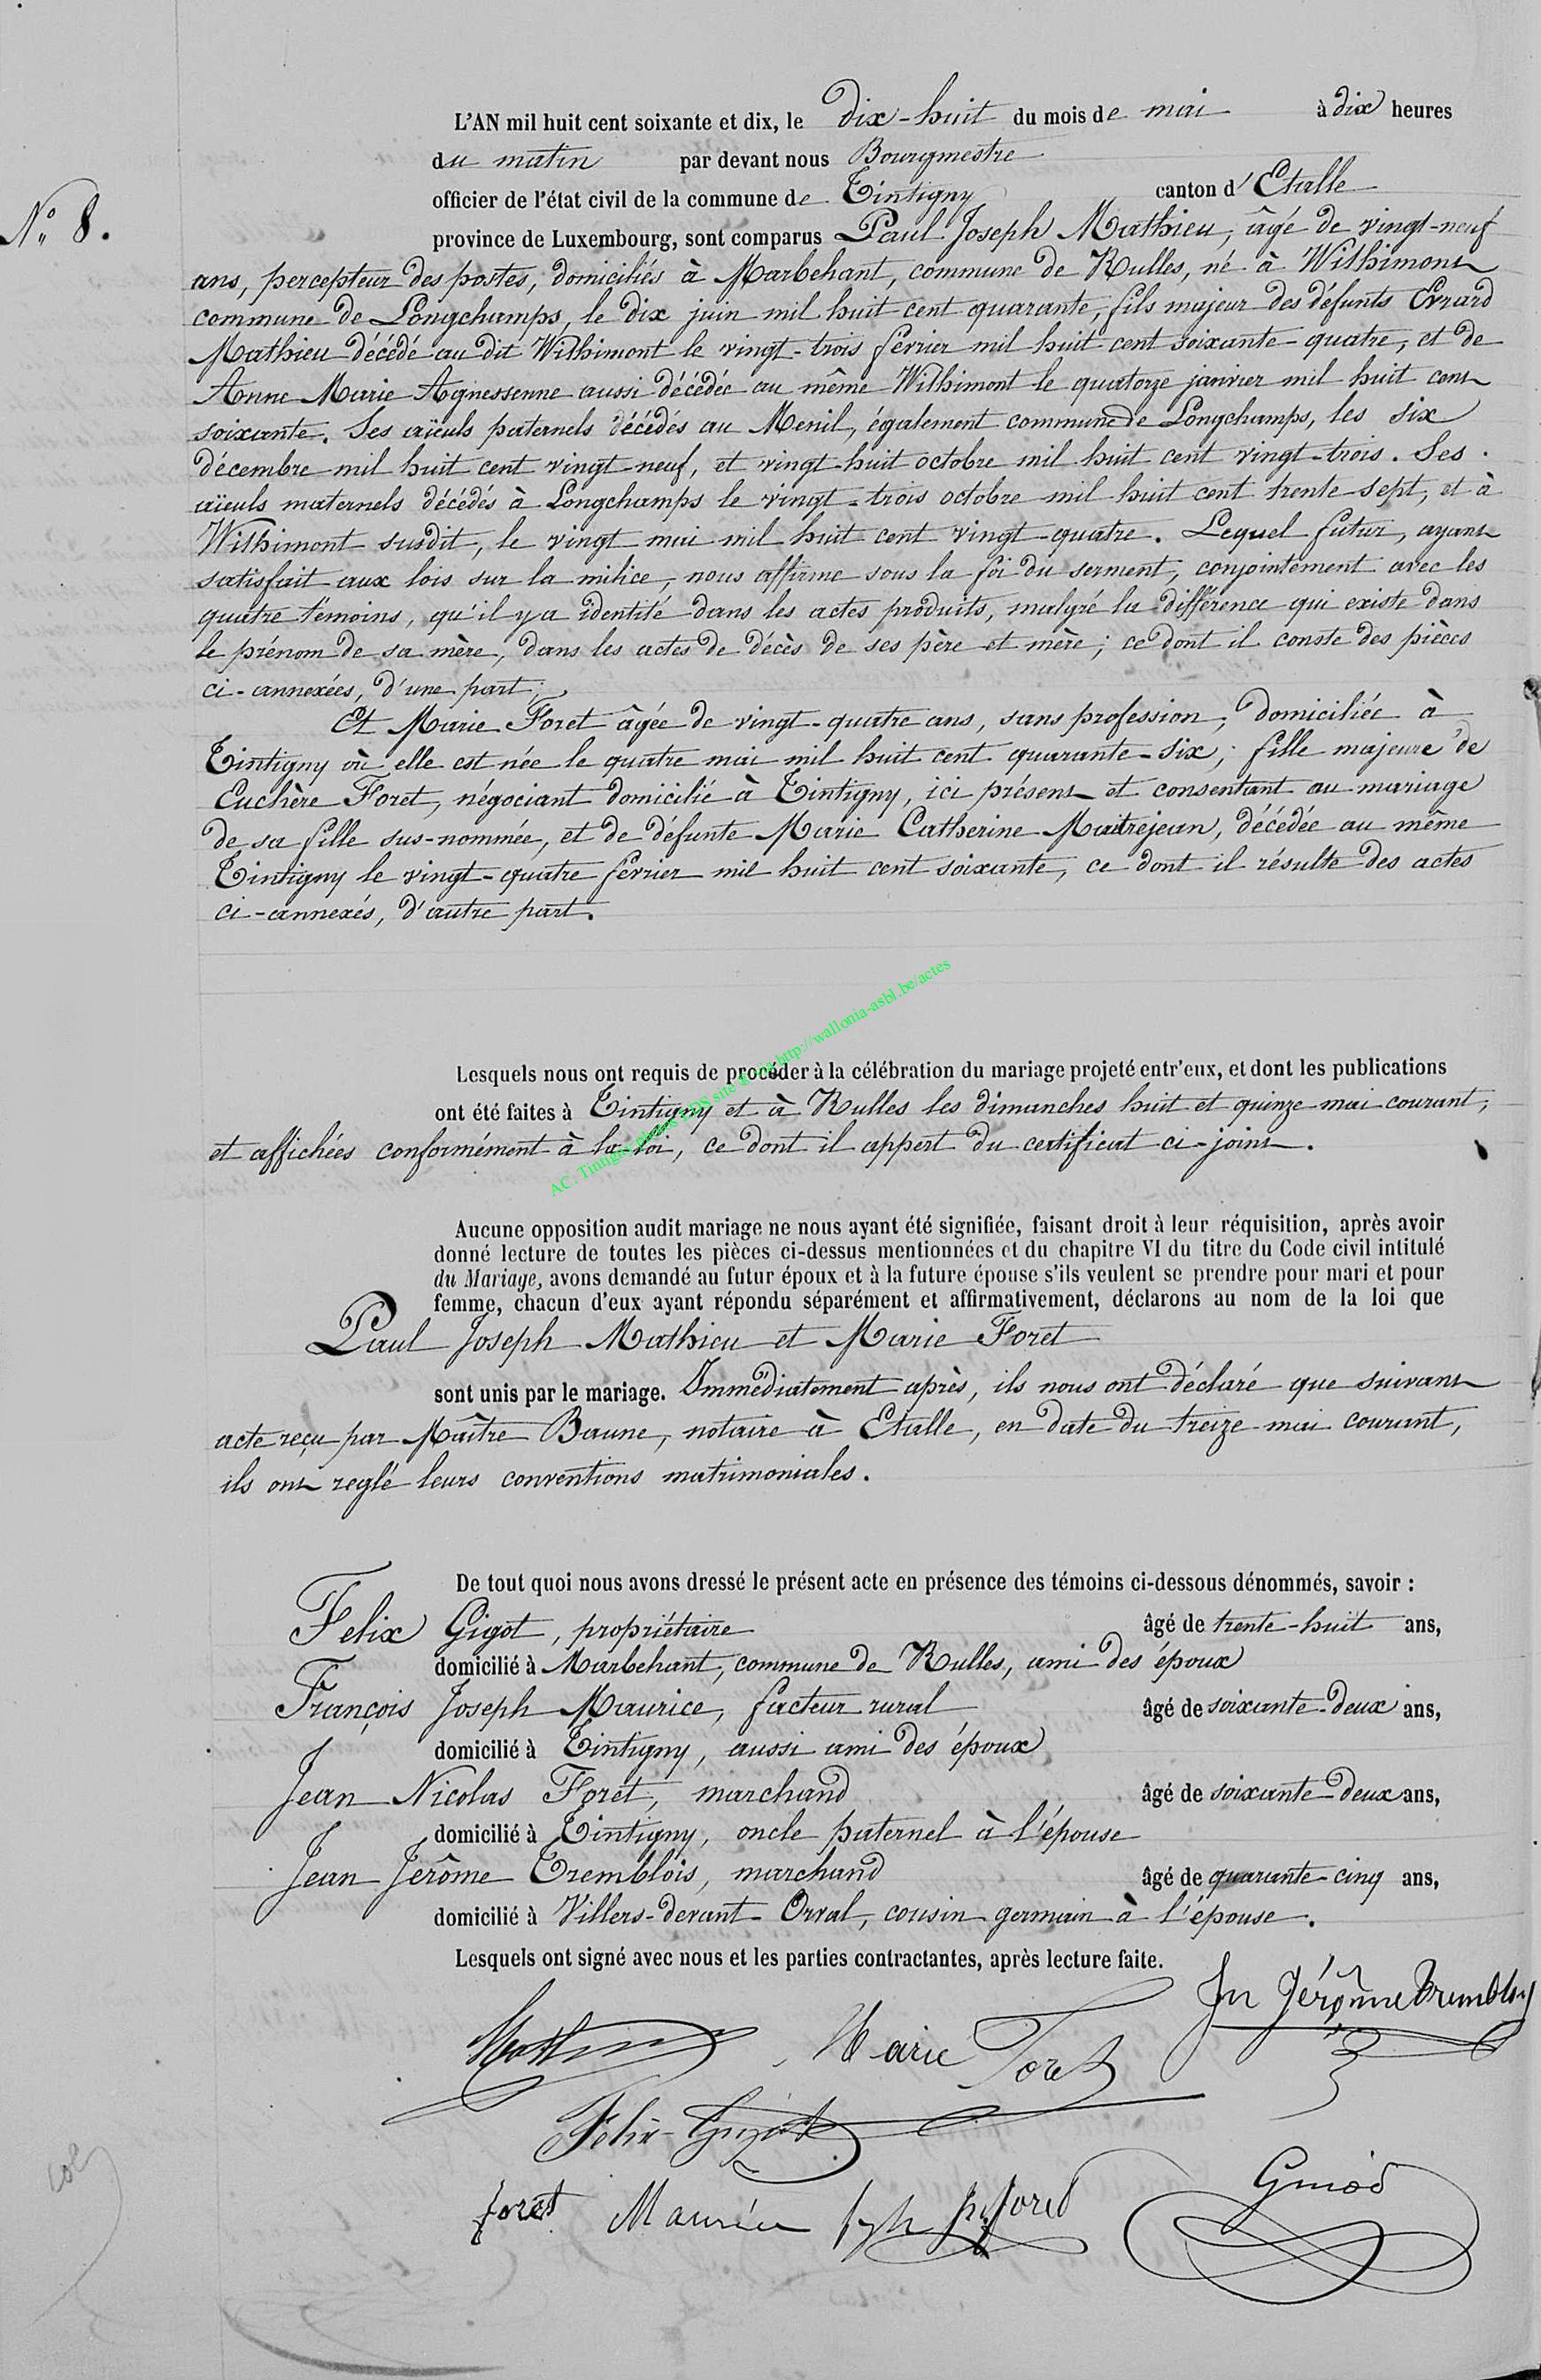 L'AN mil huit cent soixante et dix, le dix-huit du mois de mai à dix heures
du matin par devant nous Bourgmestre
officier de l'état civil de la commune de Tintigny canton d'Etalle
N° 8.
province de Luxembourg, sont comparus Paul Joseph Mathieu, âgé de vingt-neuf
ans, percepteur des postes, domiciliés à Marbehant, commune de Rulles, né à Withimont
commune de Longchamps, le dix juin mil huit cent quarante, fils majeur des défunts Evrard
Mathieu décédé au dit Withimont le vingt-trois février mil huit cent soixante-quatre, et de
Anne Marie Agnessenne aussi décédée au même Withimont le quatorze janvier mil huit cent
soixante. Ses aïeuls paternels décédés au Menil, également commune de Longchamps, les six
décembre mil huit cent vingt-neuf, et vingt-huit octobre mil huit cent vingt-trois. Ses
aïeuls maternels décédés à Longchamps le vingt-trois octobre mil huit cent trente-sept, et à
Withimont susdit, le vingt mai mil huit cent vingt-quatre. Lequel futur, ayant
satisfait aux lois sur la milice, nous affirme sous la foi du serment, conjointement avec les
quatre témoins, qu'il y a identité dans les actes produits, malgré la différence qui existe dans
le prénom de sa mère, dans les actes de décès de ses père et mère; ce dont il conste des pièces
ci-annexées, d'une part;
Et Marie Foret âgée de vingt-quatre ans, sans profession, domiciliée à
Tintigny où elle est née le quatre mai mil huit cent quarante-six; fille majeure de
Euchère Foret, négociant domicilié à Tintigny, ici présent et consentant au mariage
de sa fille sus-nommée, et de défunte Marie Catherine Maitrejean, décédée au même
Tintigny le vingt-quatre février mil huit cent soixante, ce dont il résulte des actes
ci-annexés, d'autre part.
AC. Tintigny photos site http://wallonia-asbl.be/actes
Lesquels nous ont requis de procéder à la célébration du mariage projeté entr'eux, et dont les publications
ont été faites à Tintigny et à Rulles les dimanches huit et quinze mai courant,
et affichées conformément à la loi, ce dont il appert du certificat ci-joint.
Aucune opposition audit mariage ne nous ayant été signifiée, faisant droit à leur réquisition, après avoir
donné lecture de toutes les pièces ci-dessus mentionnées et du chapitre VI du titre du Code civil intitulé
du Mariage, avons demandé au futur époux et à la future épouse s'ils veulent se prendre pour mari et pour
femme, chacun d'eux ayant répondu séparément et affirmativement, déclarons au nom de la loi que
Paul Joseph Mathieu et Marie Foret
sont unis par le mariage. Immédiatement après, ils nous ont déclaré que suivant
acte reçu par Maître Baune, notaire à Etalle, en date du treize mai courant,
ils ont reglé leurs conventions matrimoniales.
De tout quoi nous avons dressé le présent acte en présence des témoins ci-dessous dénommés, savoir :
Felix Gigot, propriétaire âgé de trente-huit ans,
domicilié à Marbehant, commune de Rulles, ami des époux
François Joseph Maurice, facteur rural âgé de soixante-deux ans,
domicilié à Tintigny, aussi ami des époux
Jean Nicolas Foret, marchand âgé de soixante-deux ans,
domicilié à Tintigny, oncle paternel à l'épouse
Jean Jerôme Tremblois, marchand âgé de quarante-cinq ans,
domicilié à Villers-devant-Orval, cousin germain à l'épouse.
Lesquels ont signé avec nous et les parties contractantes, après lecture faite.
Jn Jérôme Tremblois
Mathieu Marie Foret
Felix Gigot
foret Maurice Jph Jn foret